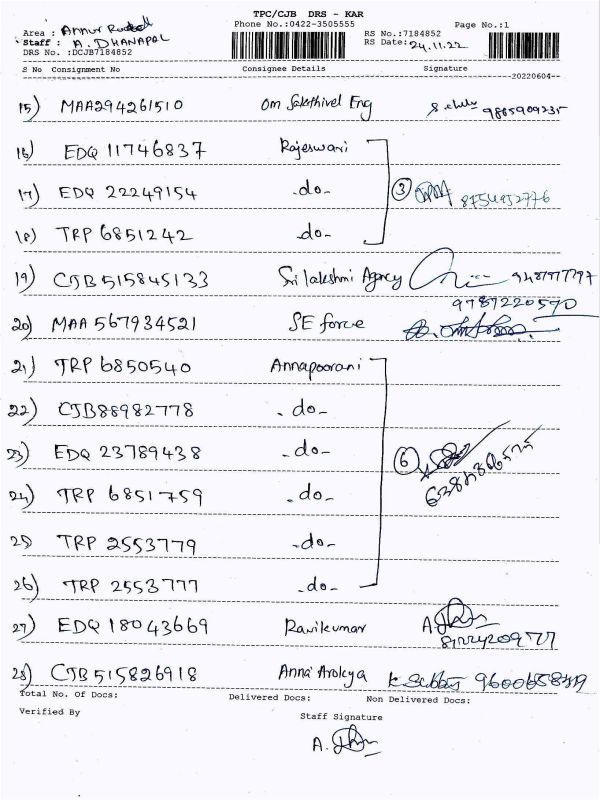 TPC/CJB DRS - KAR
Phone No.:0422-3505555 Page No.:1
Area : Annur
Staff : A. DHANAPAL
RS No.:7184852
RS Date: 24.11.22
DRS No. :DCJB7184852
S No Consignment No Consignee Details Signature
20220604
15) MAA294261510 Om Sakthivel Eng 9885909235
16) EDQ 11746837 Rajeswari
17) EDQ 22249154 -do- ③ 8754952776
18) TRP 6851242 -do-
19) CJB515845133 Sri lakshmi Agency
9787220570
20) MAA 567934521 SE force
21) TRP 6850540 Annapoorani
22) CJB88982778 -do-
23) EDQ 23789438 -do- ⑥
24) TRP 6851759 -do-
25 TRP 2553779 -do-
26) TRP 2553777 -do-
27) EDQ 18043669 Ravikumar
28) CJB515826918 Anna Arokya
Total No. Of Docs: Delivered Docs: Non Delivered Docs:
Verified By Staff Signature